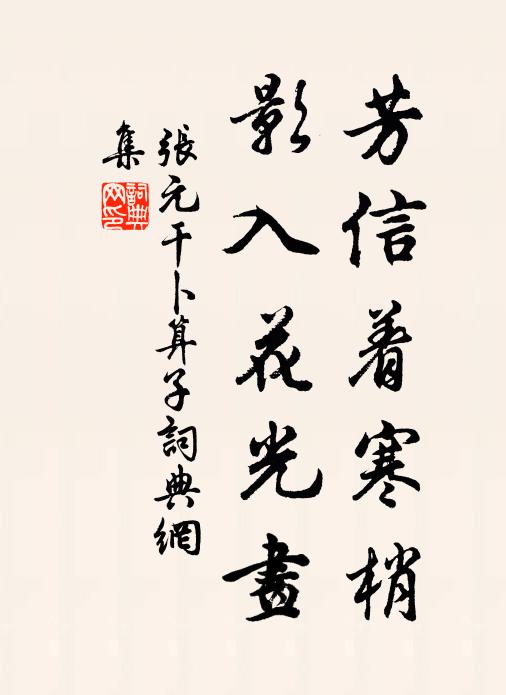 芳信着寒梢
影入花光畫
張元干卜算子詞典網
集
詞典
网印